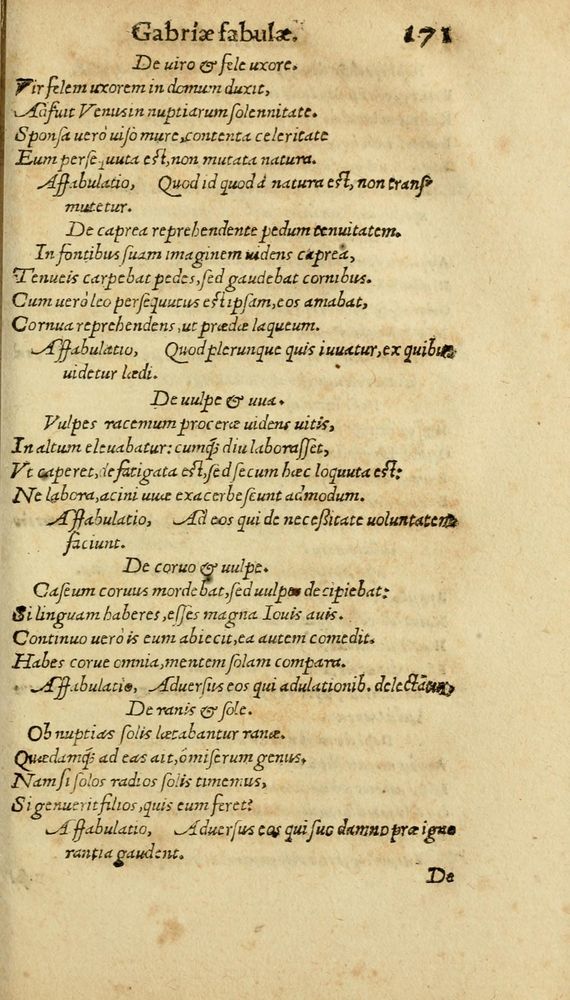 Gabriæ fabulæ. 171
De uiro & fele uxore.
Vir felem uxorem in domum duxit,
Adfuit Venus in nuptiarum solennitate.
Sponsa uerò uiso mure, contenta celeritate
Eum persequuta est, non mutata natura.
Affabulatio, Quod id quod à natura est, non trans
mutetur.
De caprea reprehendente pedum tenuitatem.
In fontibus suam imaginem uidens caprea,
Tenueis carpebat pedes, sed gaudebat cornibus.
Cum uerò leo persequutus est ipsam, eos amabat,
Cornua reprehendens, ut prædæ laqueum.
Affabulatio, Quod plerunque quis iuuatur, ex quibus
uidetur lædi.
De uulpe & uua.
Vulpes racemum proceræ uidens uitis,
In altum eleuabatur: cumq; diu laborasset,
Vt caperet, defatigata est, sed secum hæc loquuta est:
Ne labora, acini uuæ exacerbescunt admodum.
Affabulatio, Ad eos qui de necessitate uoluntatem
faciunt.
De coruo & uulpe.
Caseum coruus mordebat, sed uulpes decipiebat:
Si linguam haberes, esses magna Iouis auis.
Continuo uerò is eum abiecit, ea autem comedit.
Habes corue omnia, mentem solam compara.
Affabulatio, Aduersus eos qui adulationib. delectantur.
De ranis & sole.
Ob nuptias solis lætabantur ranæ.
Quædamq; ad eas ait, ô miserum genus,
Nam si solos radios solis timemus,
Si genuerit filios, quis eum feret?
Affabulatio, Aduersus eos qui suo damno præ igno
rantia gaudent.
De